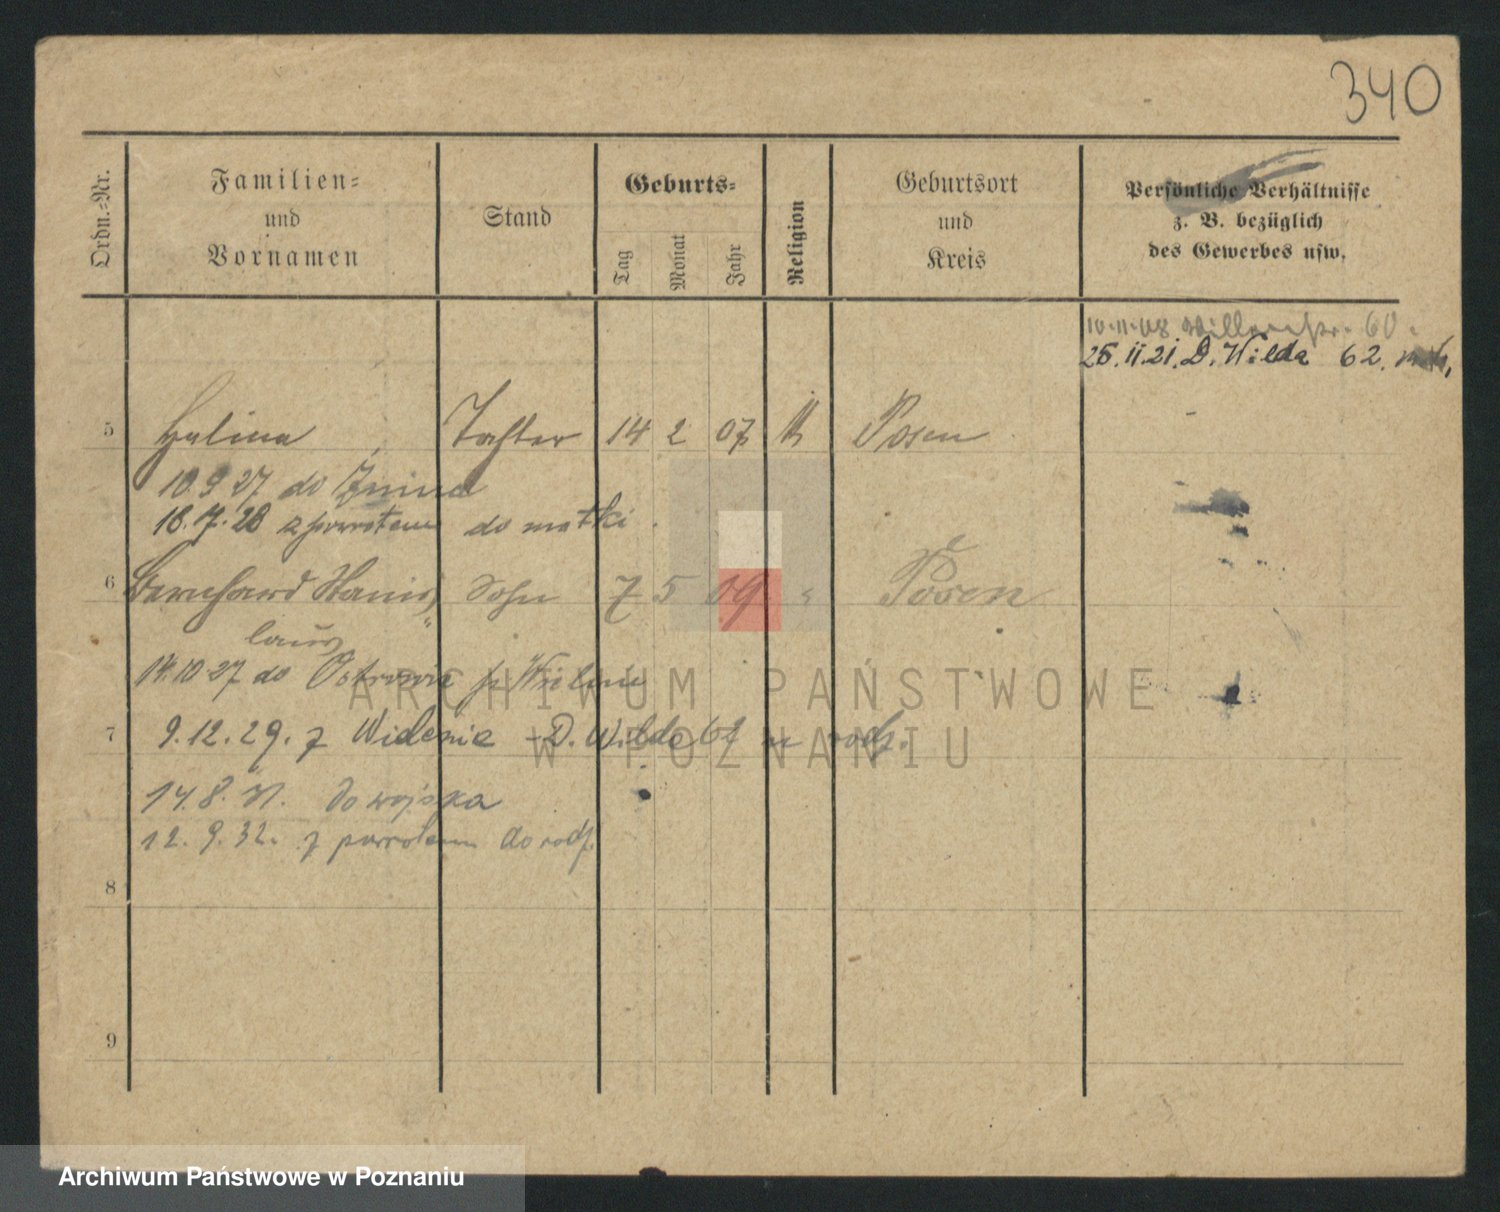 340
Ordn.-Nr.
Familien-
und
Vornamen
Stand
Geburts-
Tag
Monat
Jahr
Religion
Geburtsort
und
Kreis
Persönliche Verhältnisse
z. B. bezüglich
des Gewerbes usw.
10.11.08 60.
25.11.21. D. Wilda 62.
5 Halina Tochter 14 2 07 Posen
10.9.27 do Żnina
18.7.28 z powrotem do matki
6 Bernhard Stanis Sohn 7 5 09 " Posen
laus
14.10.27 do
7 9.12.29. z Widenia - D. Wilda 62 rodz.
14.8.31. do wojska
12.9.32. z powrotem do rodz.
8
9
ARCHIWUM PAŃSTWOWE
W POZNANIU
Archiwum Państwowe w Poznaniu